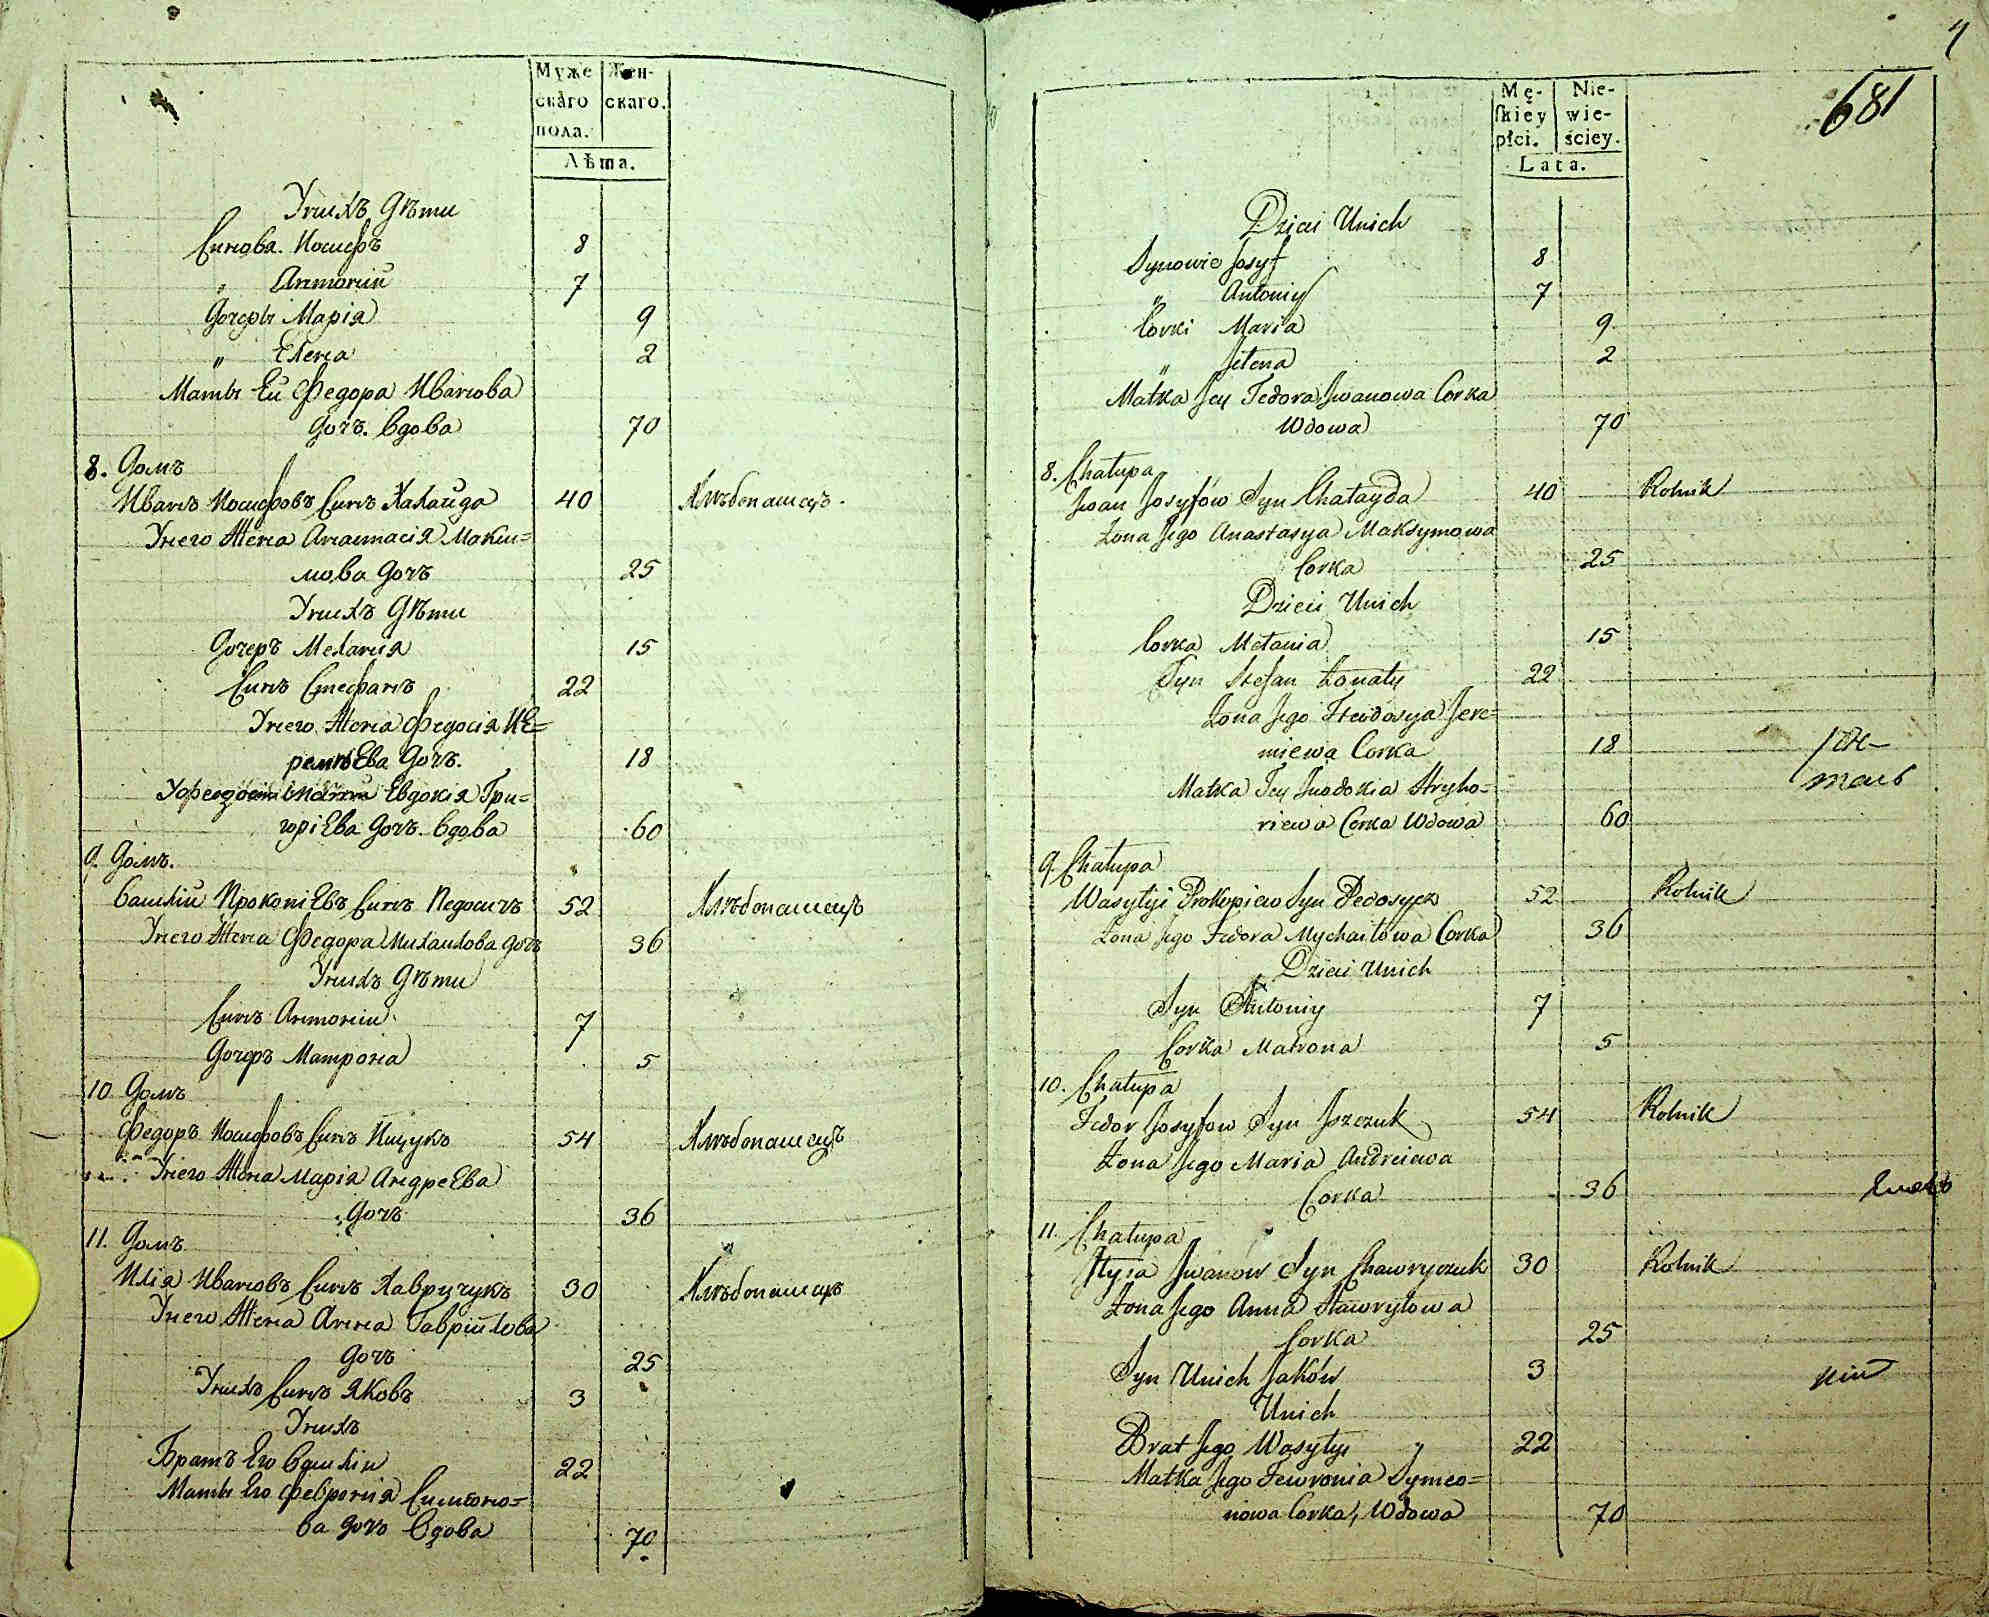 Муже
скаго
пола.
Жен-
скаго.
Лѣта.
Унихъ Дѣти
Синова. Иосифъ 8
„ Антоній 7
Дочеры Марія 9
„ Елена 2
Мать Ей Федора Иванова
Дочъ. Вдова 70
8. Домъ
Иванъ Иосифовъ Синъ Халайда 40 Хлѣбопашецъ.
Унего Жена Анастасія Макси=
мова Дочъ 25
Унихъ Дѣти
Дочеръ Меланія 15
Синъ Стефанъ 22
Унего Жена Федосія Ие=
реміева Дочъ. 18
Уфедосіи Евдокія Гри=
горіева Дочъ. Вдова 60
9. Домъ.
Василій Прокопіевъ Синъ Педосичъ 52 Хлѣбопашецъ
Унего Жена Федора Михаилова дочъ 36
Унихъ Дѣти
Синъ Антоній 7
Дочеръ Матрона 5
10 Домъ
Федоръ Иосифовъ Синъ Ищукъ 54 Хлѣбопашецъ
Унего Жена Марія Андреева
Дочъ 36
11. Домъ
Илія Ивановъ Синъ Хавричукъ 30 Хлѣбопашецъ
Унего Жена Анна Гавріилова
Дочъ 25
Унихъ Синъ Яковъ 3
Унихъ
Братъ Его Василій 22
Мать Его Февронія Симеоно=
ва дочъ Вдова 70
4
681
Mę-
skiey
płci.
Nie-
wie-
ściey.
Lata.
Dzieci Unich
Synowie Josyf 8
„ Antoniy 7
Corki Maria 9
„ Jełena 2
Matka Jey Fedora Jwanowa Corka
Wdowa 70
8. Chałupa
Jwan Josyfów Syn Chałayda 40 Rolnik
Żona Jego Anastasya Maksymowa
Corka 25
Dzieci Unich
Corka Mełania 15
Syn Stefan Żonaty 22
Żona Jego Fteodosya Jere=
miewa Corka 18
Matka Jey Jwodokia Hryho=
riewa Corka Wdowa 60
9. Chałupa
Wasylyi Prokopiew Syn Pedosycz 52 Rolnik
Żona Jego Fedora Mychaiłowa Corka 36
Dzieci Unich
Syn Antoniy 7
Corka Matrona 5
10. Chałupa
Fedor Josyfow Syn Jszczuk 54 Rolnik
Żona Jego Maria Andreiewa
Corka 36
11. Chałupa
Jlyia Jwanów Syn Chawryczuk 30 Rolnik
Żona Jego Anna Hawryłowa
Corka 25
Syn Unich Jaków 3
Unich
Brat Jego Wasylyi 22
Matka Jego Fewronia Symeo=
nowa Corka, Wdowa 70